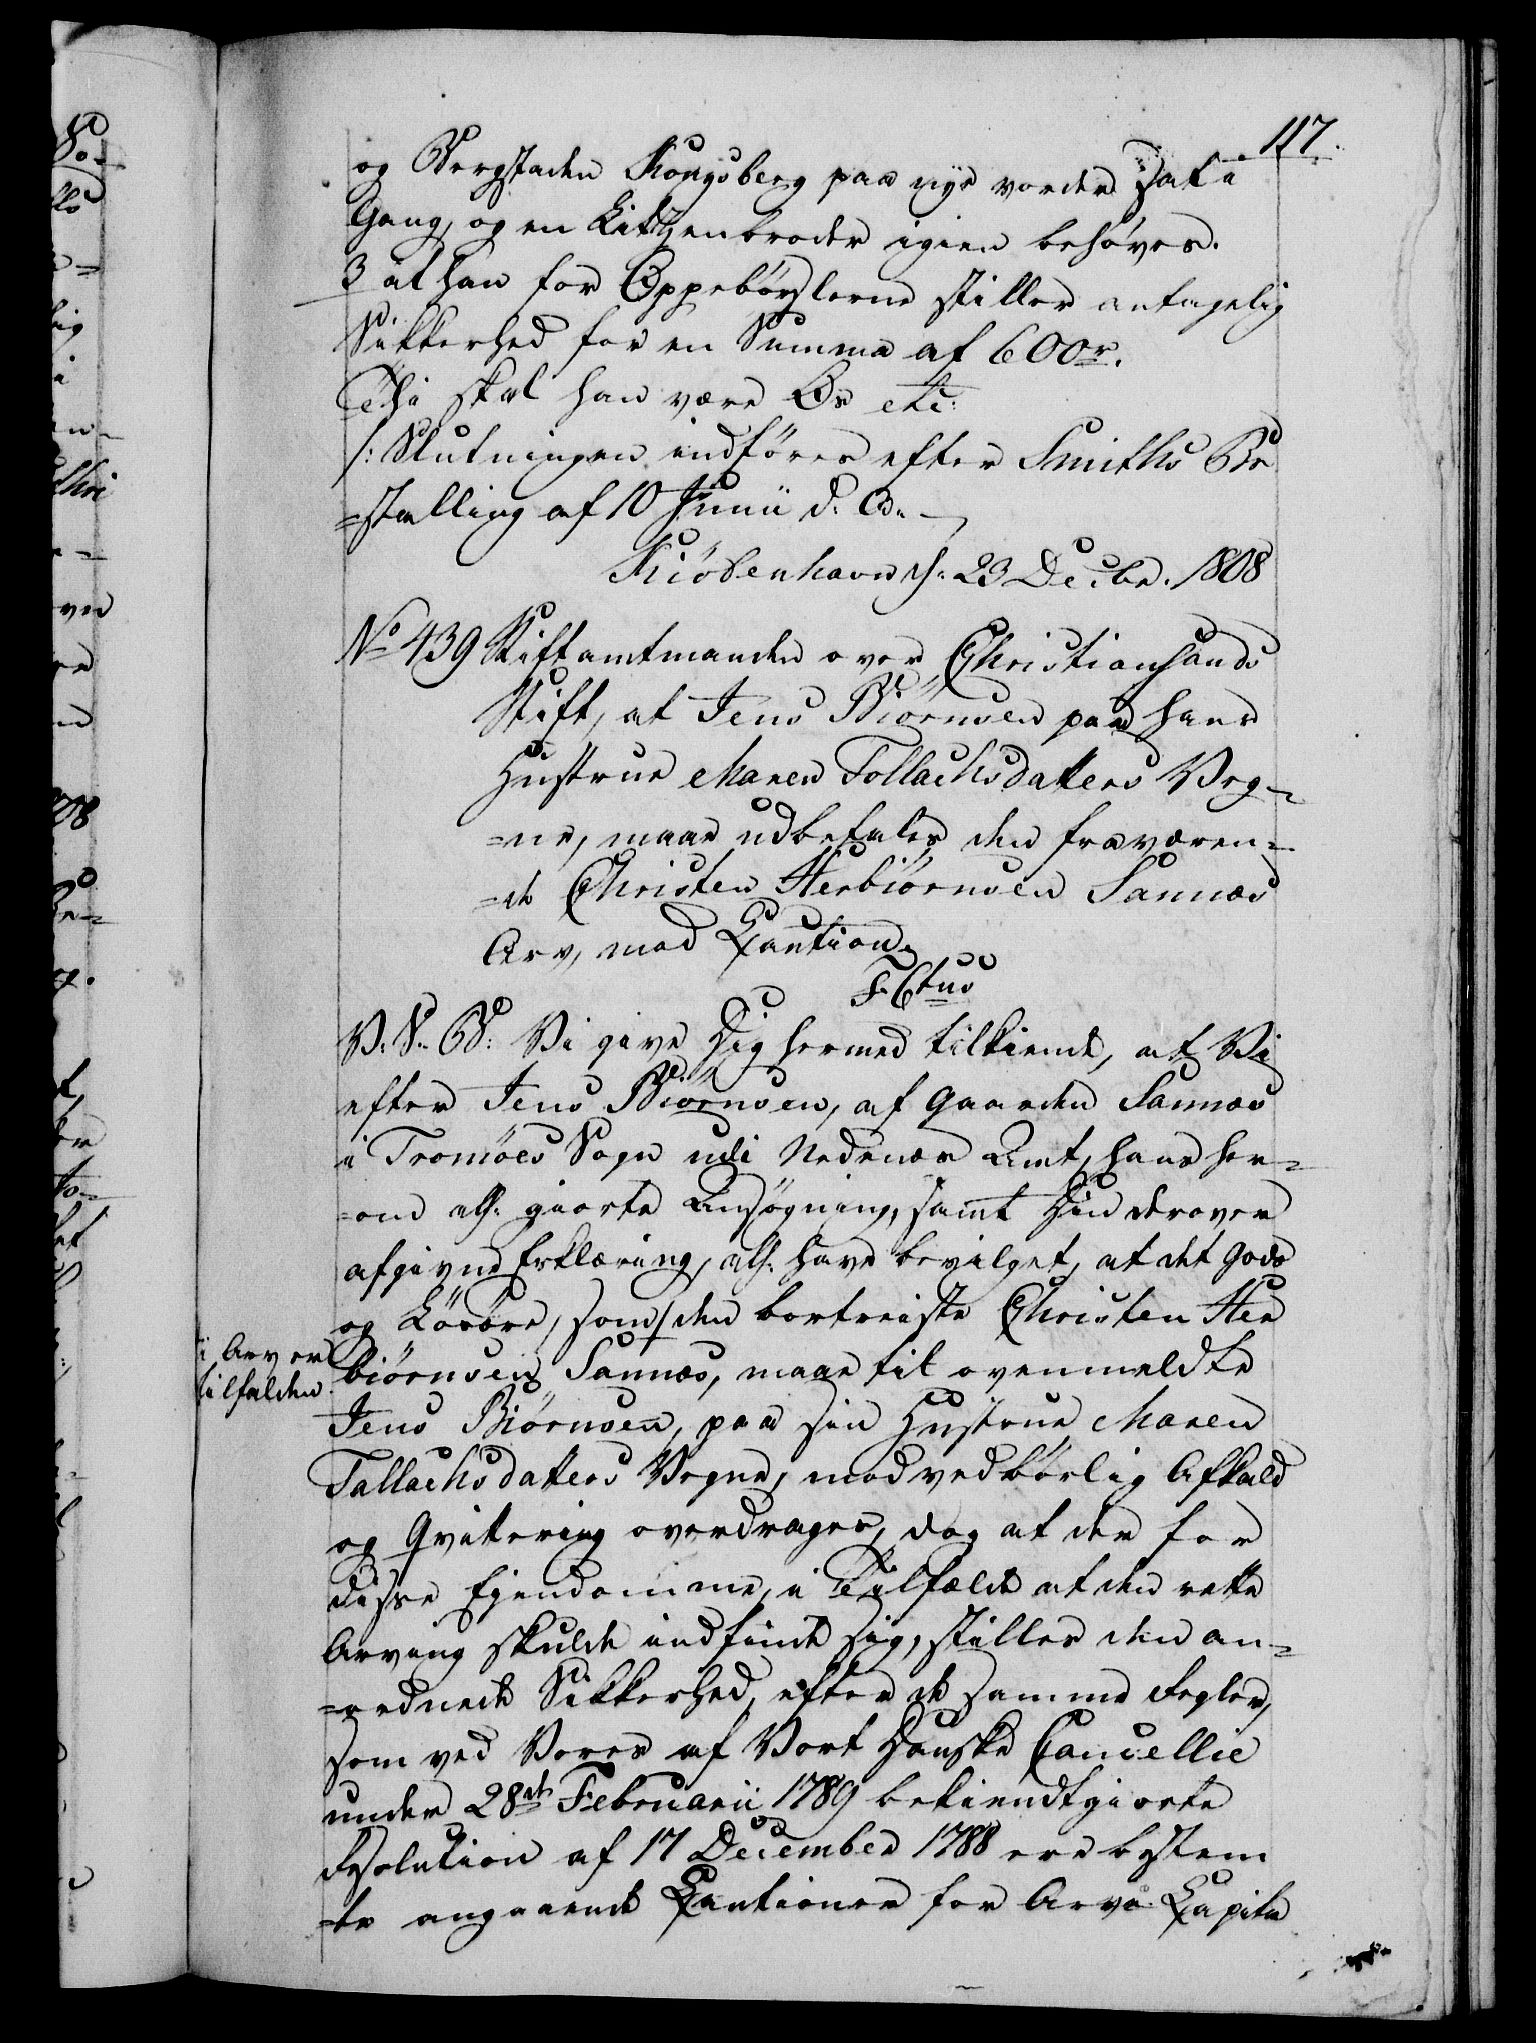 117.
og Bergstaden Kongsberg paa nye vorder sat i
Gang, og en Litzenbroder igien behøves.
3 at han for Oppebørslerne stiller antagelig
Sikkerhed for en Summa af 600 r.
Thi skal han være Os etc:
/: Slutningen indføres efter Smiths Be
=stalling af 10 Junii d. A.
Kiøbenhavn d. 23 Decbr. 1808
No 439 Stiftamtmanden over Christiansands
Stift, at Jens Biørnsen paa hans
Hustrue Maren Tollachsdatters Veg=
=ne, maae udbetales den fraværen=
=de Christen Herbiørnsen Sannæs
Arv, mod Caution.
F6tus
V. S. B: Vi give Dig hermed tilkiende, at Vi
efter Jens Biørnsen, af Gaarden Sannæs
i Tromöes Sogn udi Nedenæs Amt, hans her=
=om allr. giorte Ansøgning, samt Din derover
afgivne Erklæring, allr. have bevilget, at det Gods
og Løsøre, som / den bortreiste Christen Her
i Arv er
tilfalden
biørnsen Sannæs, maae til ovenmeldte
Jens Biørnsen, paa sin Hustrue Maren
Tallachsdatters Vegne, mod vedbørlig Afkald
og Qvitering overdrages, dog at der for
disse Ejendomme, i Tilfælde at den rette
Arving skulde indfinde sig, stilles den an=
=ordnede Sikkerhed, efter de samme Regler,
som ved Vores af Vort Danske Cancellie
under 28de Februarii 1789 bekiendtgiorte
Resolution af 17 December 1788 ere bestem
=te angaaende Cautioner for Arve Capita